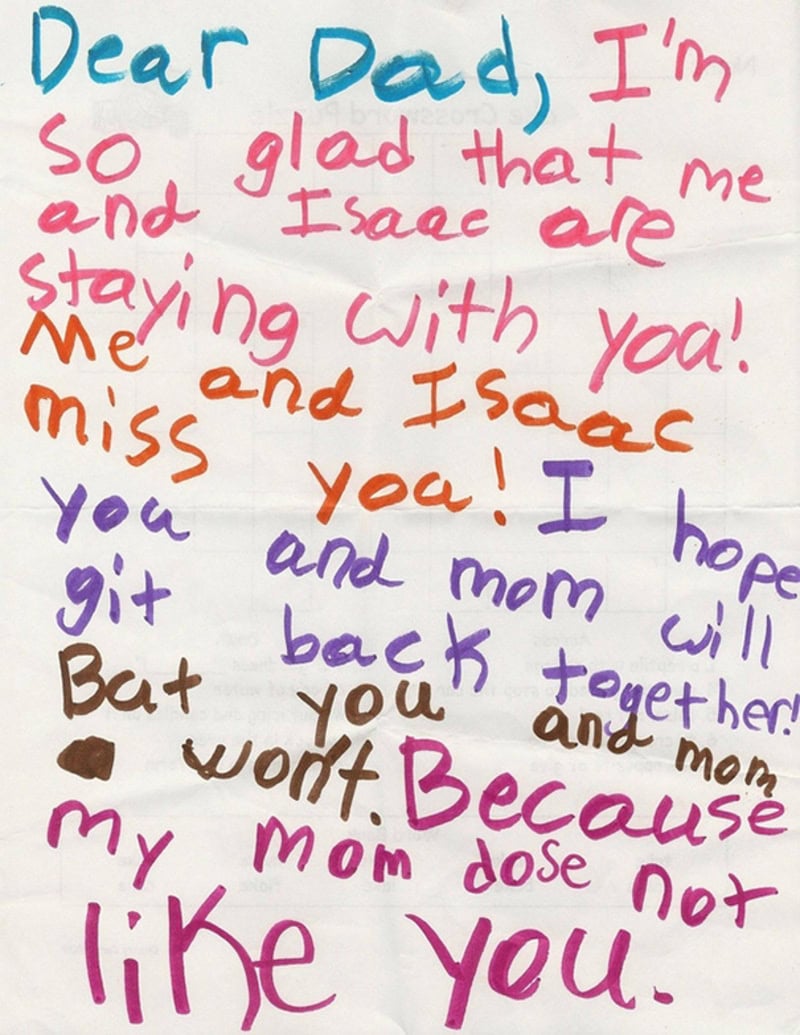 Dear Dad, I'm
So glad that me
and Isaac are
staying with you!
Me and Isaac
miss you! I hope
you and mom will
git back together!
But you and mom
won't. Because
my mom dose not
like you.